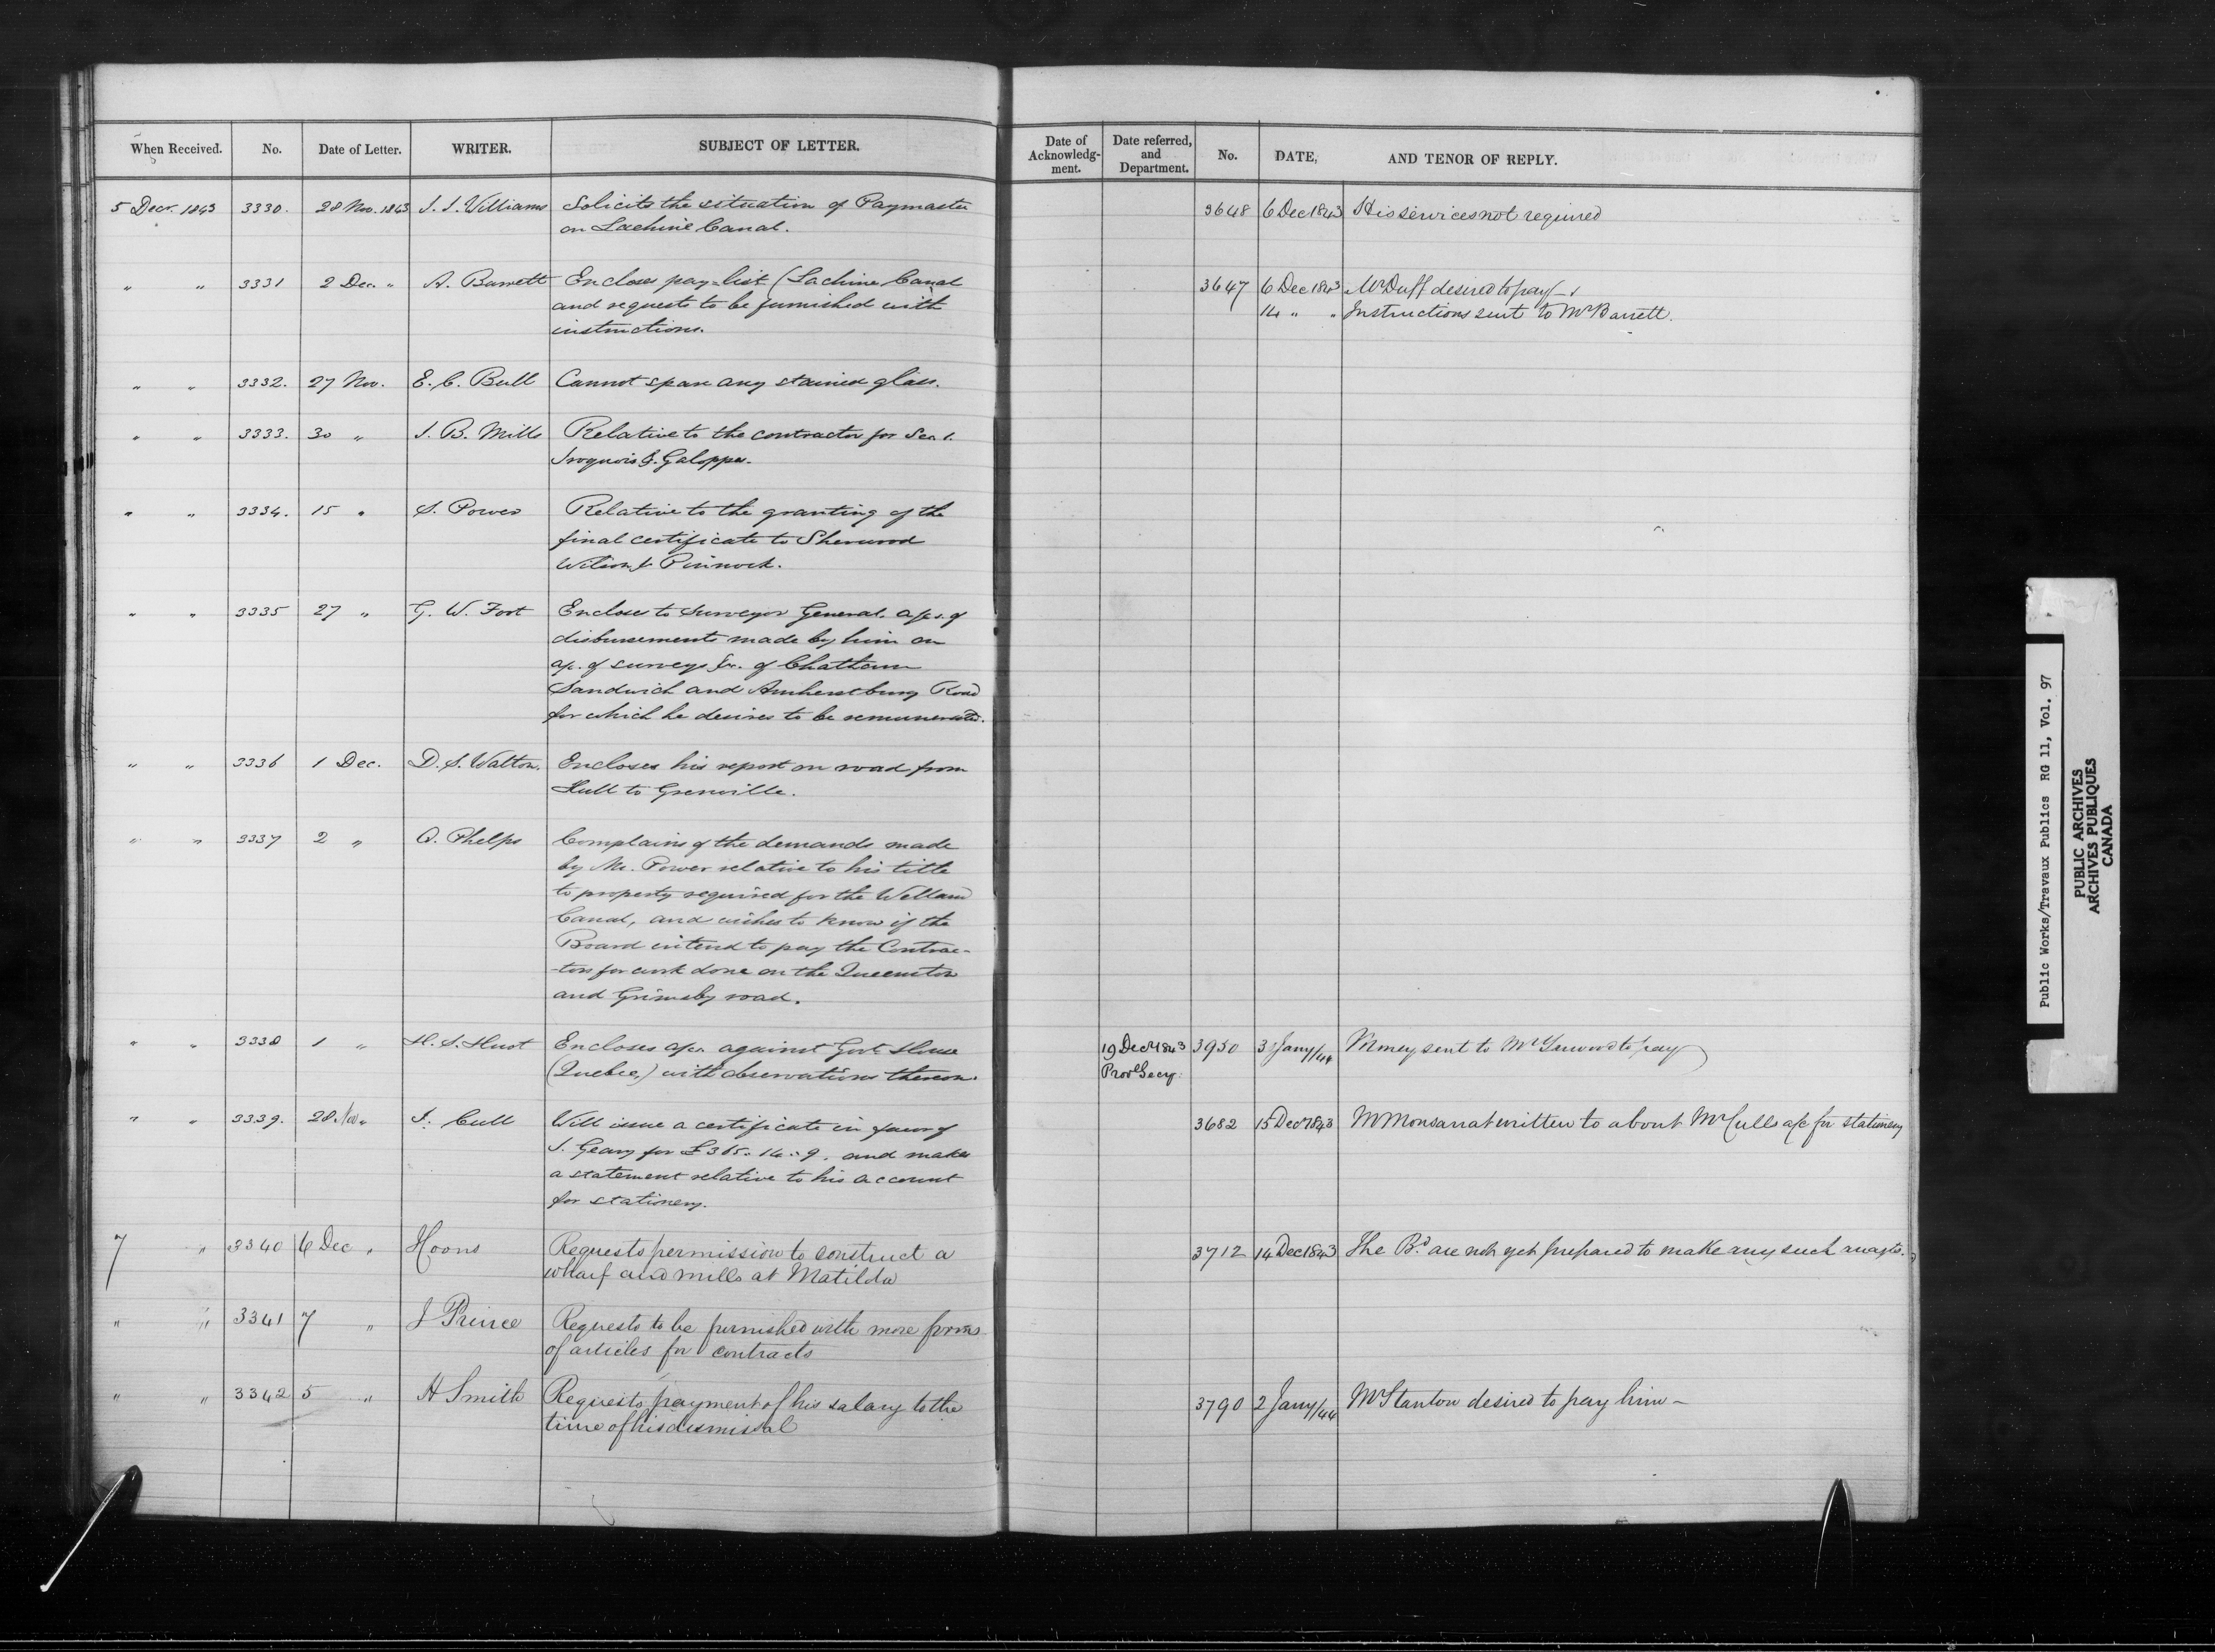 When Received. No. Date of Letter. WRITER. SUBJECT OF LETTER.
5 Decr. 1843 3330. 28 Nov. 1843 J. J. Williams Solicits the situation of Paymaster
on Lachine Canal.
" " 3331 2 Dec. " A. Barrett Encloses pay-list (Lachine Canal
and requests to be furnished with
instructions.
" " 3332. 27 Nov. E. C. Bull Cannot spare any stained glass.
" " 3333. 30 " J. B. Mills Relative to the contractor for Sec. 1.
Iroquois & Galoppes.
" " 3334. 15 " S. Power Relative to the granting of the
final certificate to Sherwood
Wilson & Pinnock.
" " 3335 27 " G. W. Fort Encloses to Surveyor General, a/cs. of
disbursements made by him on
a/c. of surveys &c. of Chatham
Sandwich and Amherstburg Road
for which he desires to be remunerated.
" " 3336 1 Dec. D. S. Walton. Encloses his report on road from
Hull to Grenville.
" " 3337 2 " O. Phelps Complains of the demands made
by Mr. Power relative to his title
to property required for the Welland
Canal, and wishes to know if the
Board intend to pay the Contrac-
-tors for work done on the Queenston
and Grimsby road.
" " 3338 1 " H. S. Huot Encloses a/cs. against Govt. House
(Quebec,) with observations thereon.
" " 3339. 28 Nov " J. Cull Will issue a certificate in favor of
J. Geary for £365. 14. 9. and makes
a statement relative to his account
for stationery.
7 " 3340 6 Dec " Hoons Requests permission to construct a
wharf and mills at Matilda
" " 3341 7 " J Prince Requests to be furnished with more forms
of articles for contracts
" " 3342 5 " H Smith Requests payment of his salary to the
time of his dismissal
Date of Acknowledg-ment. Date referred, and Department. No. DATE, AND TENOR OF REPLY.
3648 6 Dec 1843 His services not required
3647 6 Dec 1843 Mr Duff desired to pay
14 " " Instructions sent to Mr Barrett.
19 Decr 1843 3950 31 Jany/44 Money sent to Mr Yarwood to pay
Provl Secy.
3682 15 Decr 1843 Mr Monsarrat written to about Mr Culls a/c for stationery
3712 14 Dec 1843 The Bd. are not yet prepared to make any such arragts.
3790 2 Jany/44 Mr Stanton desired to pay him –
Public Works/Travaux Publics RG 11, Vol. 97
PUBLIC ARCHIVES
ARCHIVES PUBLIQUES
CANADA